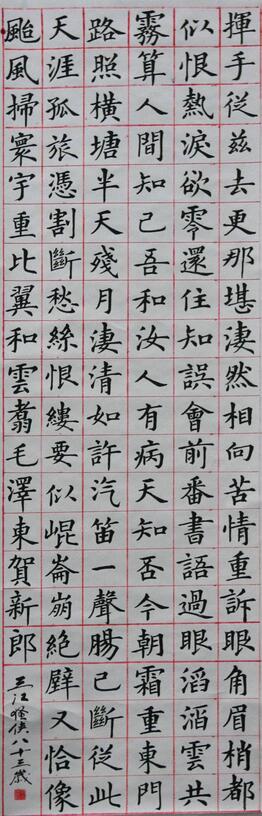 揮手從茲去更那堪淒然相向苦情重訴眼角眉梢都
似恨熱淚欲零還住知誤會前番書語過眼滔滔雲共
霧算人間知己吾和汝人有病天知否今朝霜重東門
路照橫塘半天殘月淒清如許汽笛一聲腸已斷從此
天涯孤旅憑割斷愁絲恨縷要似崐崙崩絕壁又恰像
颱風掃寰宇重比翼和雲翥毛澤東賀新郎
三江俠八十三歲